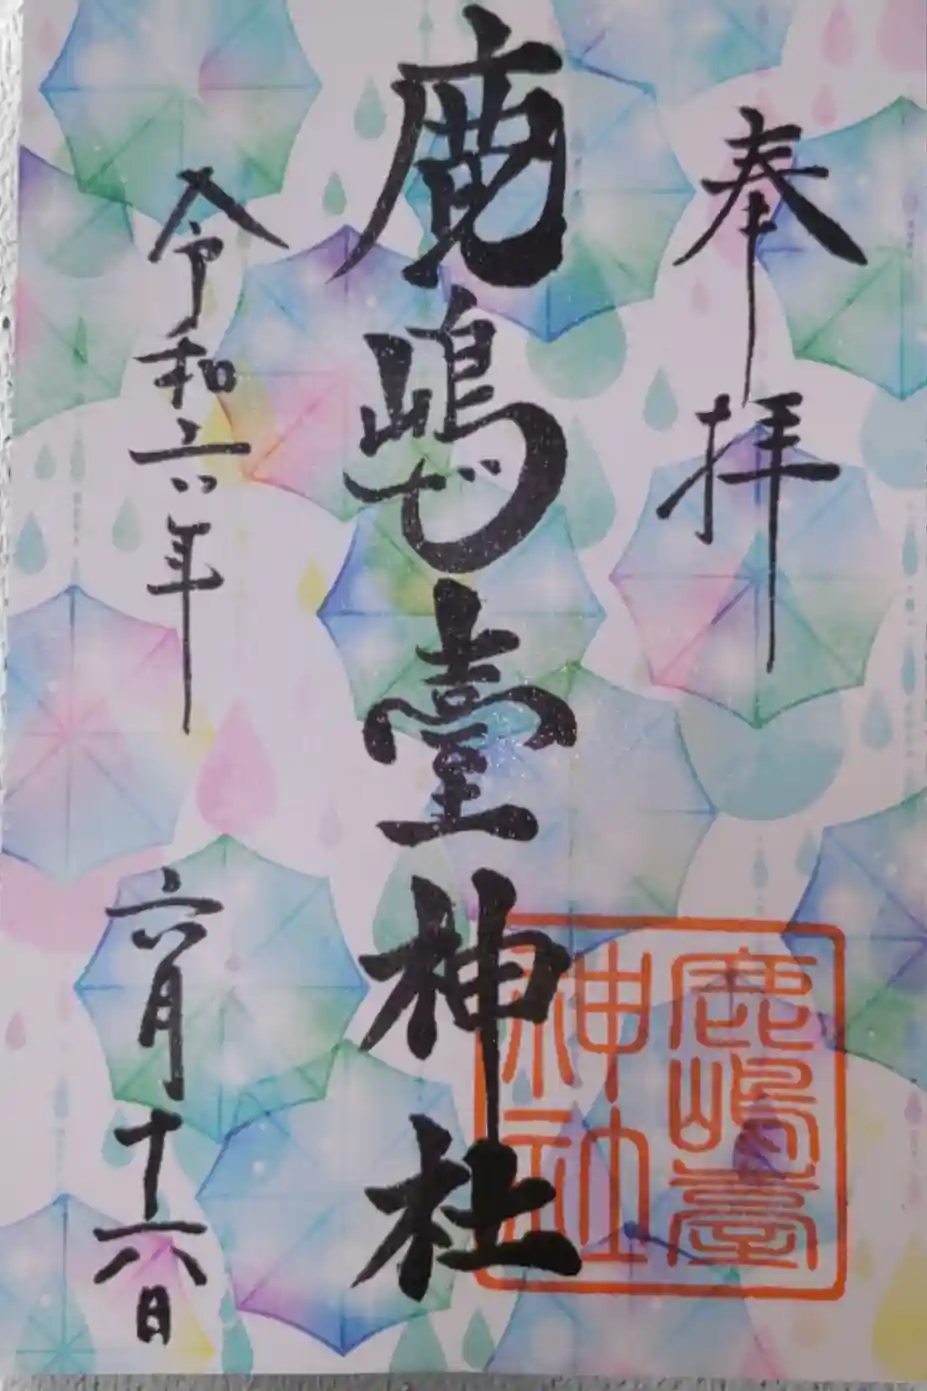 奉拝
鹿嶋臺神社
令和六年 六月十六日
鹿嶋臺
神社